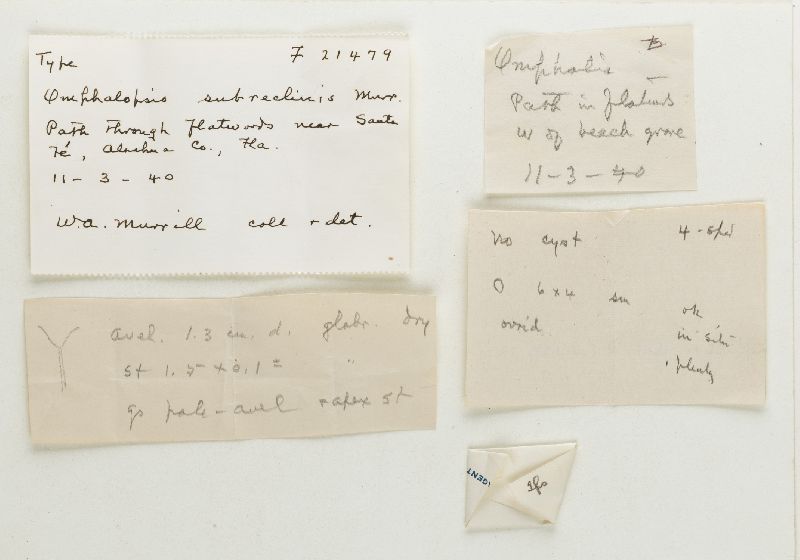 Type F 21479
Omphalopsis subreclinis Murr.
Path through flatwoods near Santa
Fé, Alachua Co., Fla.
11-3-40
W.A. Murrill coll + det.
Omphalia
Path in flatwds
w of beach grove
11-3-40
no cyst 4-spd
O 6x4 sm
ovoid
ok
in situ
plenty
avel. 1.3 cm. d. glabr. dry
st 1.5 x 0.1 "
gs pale-avel + apex st
AGENT